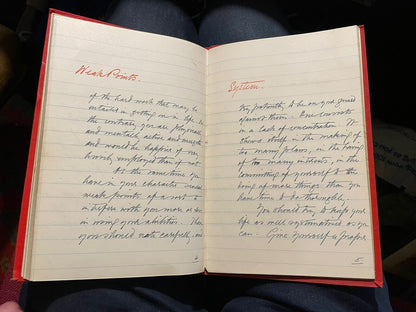 Weak Points.
of the hard work that may be
entailed in getting on in life. On
the contrary, you are physically
and mentally active and muscular
and would be happier if vig-
orously employed than if not.
At the same time you
have in your character certain
weak points of a sort to
interfere with you more or less
in using your abilities. These
you should note carefully, and
4
System.
try, patiently, to be on your guard
against them. One consists
in a lack of concentration. It
shows itself in the making of
too many plans, in the having
of too many interests, in the
committing of yourself to the
doing of more things than you
have time to do thoroughly.
You should try to keep your
life as well systematized as you
can. Give yourself a proper
5